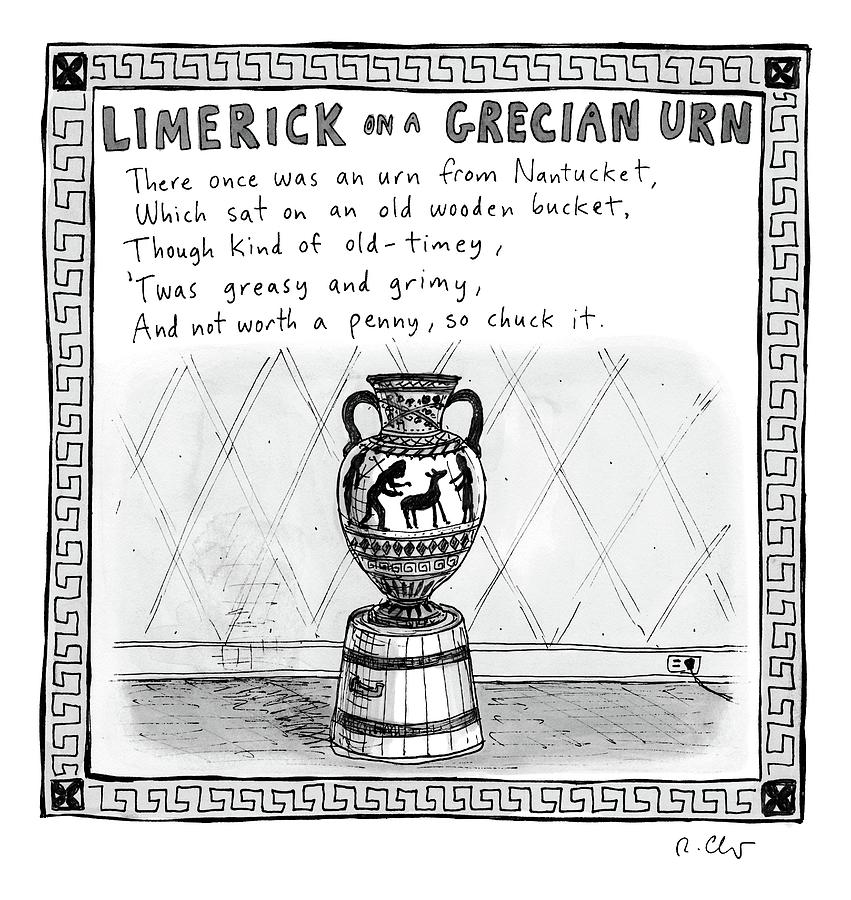 LIMERICK ON A GRECIAN URN
There once was an urn from Nantucket,
Which sat on an old wooden bucket,
Though kind of old-timey,
'Twas greasy and grimy,
And not worth a penny, so chuck it.